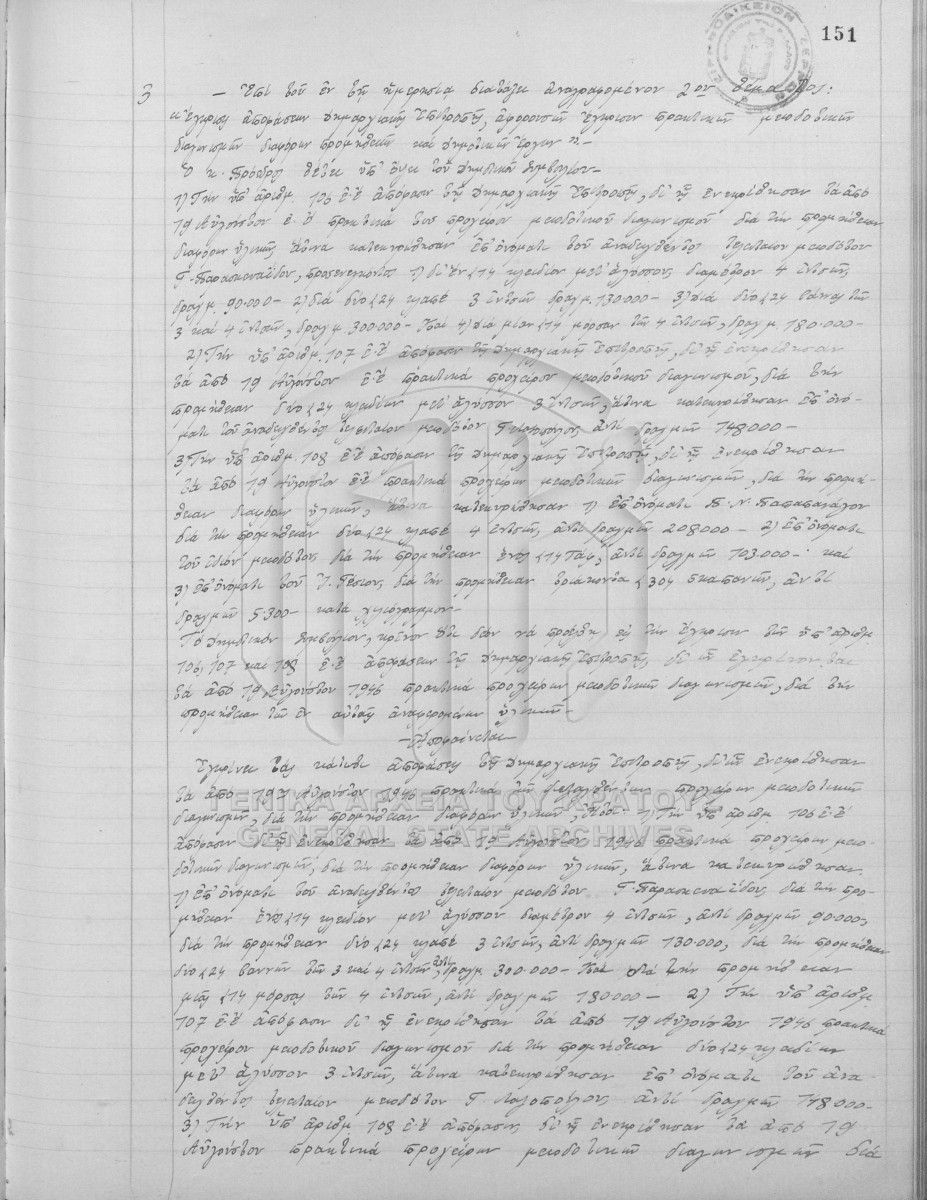 151
ΕΙΡΗΝΟΔΙΚΕΙΟΝ
3 — Ἐπὶ τοῦ ἐν τῇ ἡμερησίᾳ διατάξει ἀναγραφομένου 2ου θέματος:
«Ἔγκρισις ἀποφάσεων Δημαρχιακῆς Ἐπιτροπῆς, ἀφορουσῶν ἔγκρισιν πρακτικῶν μειοδοτικῶν
διαγωνισμῶν διαφόρων προμηθειῶν καὶ δημοτικῶν ἔργων».—
Ὁ κ. Πρόεδρος θέτει ὑπ' ὄψει τοῦ Δημοτικοῦ Συμβουλίου—
1) Τὴν ὑπ' ἀριθμ. 106 ἐ.ἔ ἀπόφασιν τῆς Δημαρχιακῆς Ἐπιτροπῆς, δι' ἧς ἐνεκρίθησαν τὰ ἀπὸ
19 Αὐγούστου ἐ.ἔ πρακτικὰ τοῦ προχείρου μειοδοτικοῦ διαγωνισμοῦ διὰ τὴν προμήθειαν
διαφόρων ὑλικῶν, ἅτινα κατεκυρώθησαν ἐπ' ὀνόματι τοῦ ἀναδειχθέντος τελευταίου μειοδότου
Γ. Παρασκευαΐδου, 1) δι' ἕν (1) κλειδίον μετ' ἁλύσου, διαμέτρου 4 ἰντσῶν,
δραχμ. 90.000— 2) διὰ δύο (2) κλαπέ 3 ἰντσῶν δραχμ. 130.000— 3) διὰ δύο (2) βάννας τῶν
3 καὶ 4 ἰντσῶν, δραχμ. 300.000— Καὶ 4) διὰ μίαν (1) μόρσαν τῶν 4 ἰντσῶν, δραχμ. 180.000—
2) Τὴν ὑπ' ἀριθμ. 107 ἐ.ἔ ἀπόφασιν τῆς Δημαρχιακῆς Ἐπιτροπῆς, δι' ἧς ἐνεκρίθησαν
τὰ ἀπὸ 19 Αὐγούστου ἐ.ἔ πρακτικὰ προχείρου μειοδοτικοῦ διαγωνισμοῦ, διὰ τὴν
προμήθειαν δύο (2) κλειδίων μετ' ἁλύσου 3 ἰντσῶν, ἅτινα κατεκυρώθησαν ἐπ' ὀνό-
ματι τοῦ ἀναδειχθέντος τελευταίου μειοδότου ἀντὶ δραχμῶν 148.000—
3) Τὴν ὑπ' ἀριθμ. 108 ἐ.ἔ ἀπόφασιν τῆς Δημαρχιακῆς Ἐπιτροπῆς, δι' ἧς ἐνεκρίθησαν
τὰ ἀπὸ 19 Αὐγούστου ἐ.ἔ πρακτικὰ προχείρων μειοδοτικῶν διαγωνισμῶν, διὰ τὴν προμή-
θειαν διαφόρων ὑλικῶν, ἅτινα κατεκυρώθησαν 1) ἐπ' ὀνόματι Π. Ν.
διὰ τὴν προμήθειαν δύο (2) κλαπέ 4 ἰντσῶν, ἀντὶ δραχμῶν 208.000— 2) ἐπ' ὀνόματι
τοῦ ἰδίου μειοδότου, διὰ τὴν προμήθειαν ἑνὸς (1) ἀντὶ δραχμῶν 103.000—. καὶ
3) ἐπ' ὀνόματι τοῦ διὰ τὴν προμήθειαν τριάκοντα (30) σκαπανῶν, ἀντὶ
δραχμῶν 5.300— κατὰ χιλιόγραμμον—
Τὸ Δημοτικὸν Συμβούλιον, κρῖνον ὅτι δέον νὰ προβῇ εἰς τὴν ἔγκρισιν τῶν ὑπ' ἀριθμ.
106, 107 καὶ 108 ἐ.ἔ ἀποφάσεων τῆς Δημαρχιακῆς Ἐπιτροπῆς, δι' ὧν ἐγκρίνονται
τὰ ἀπὸ 19 Αὐγούστου 1946 πρακτικὰ προχείρων μειοδοτικῶν διαγωνισμῶν, διὰ τὴν
προμήθειαν τῶν ἐν αὐταῖς ἀναφερομένων ὑλικῶν—
—Ἀποφαίνεται—
Ἐγκρίνει τὰς κάτωθι ἀποφάσεις τῆς Δημαρχιακῆς Ἐπιτροπῆς, δι' ὧν ἐνεκρίθησαν
τὰ ἀπὸ 19 Αὐγούστου 1946 πρακτικὰ τῶν προχείρων μειοδοτικῶν
διαγωνισμῶν, διὰ τὴν προμήθειαν διαφόρων ὑλικῶν, ἤτοι: 1) Τὴν ὑπ' ἀριθμ. 106 ἐ.ἔ
ΓΕΝΙΚΑ ΑΡΧΕΙΑ ΤΟΥ ΚΡΑΤΟΥΣ
GENERAL STATE ARCHIVES
ἀπόφασιν δι' ἧς ἐνεκρίθησαν τὰ ἀπὸ 19 Αὐγούστου 1946 πρακτικὰ προχείρων μειο-
δοτικῶν διαγωνισμῶν, διὰ τὴν προμήθειαν διαφόρων ὑλικῶν, ἅτινα κατεκυρώθησαν
1) ἐπ' ὀνόματι τοῦ ἀναδειχθέντος τελευταίου μειοδότου Γ. Παρασκευαΐδου, διὰ τὴν προ-
μήθειαν ἑνὸς (1) κλειδίου μετ' ἁλύσου διαμέτρου 4 ἰντσῶν, ἀντὶ δραχμῶν 90.000,
διὰ τὴν προμήθειαν δύο (2) κλαπέ 3 ἰντσῶν, ἀντὶ δραχμῶν 130.000, διὰ τὴν προμήθειαν
δύο (2) βαννῶν τῶν 3 καὶ 4 ἰντσῶν, ἀντὶ δραχμ. 300.000— Καὶ διὰ τὴν προμήθειαν
μιᾶς (1) μόρσας τῶν 4 ἰντσῶν, ἀντὶ δραχμῶν 180.000— 2) Τὴν ὑπ' ἀριθμ.
107 ἐ.ἔ ἀπόφασιν δι' ἧς ἐνεκρίθησαν τὰ ἀπὸ 19 Αὐγούστου 1946 πρακτικὰ
προχείρου μειοδοτικοῦ διαγωνισμοῦ διὰ τὴν προμήθειαν δύο (2) κλειδίων
μετ' ἁλύσου 3 ἰντσῶν, ἅτινα κατεκυρώθησαν ἐπ' ὀνόματι τοῦ ἀνα-
δειχθέντος τελευταίου μειοδότου Γ. ἀντὶ δραχμῶν 148.000—
3) Τὴν ὑπ' ἀριθμ. 108 ἐ.ἔ ἀπόφασιν, δι' ἧς ἐνεκρίθησαν τὰ ἀπὸ 19
Αὐγούστου πρακτικὰ προχείρων μειοδοτικῶν διαγωνισμῶν διὰ